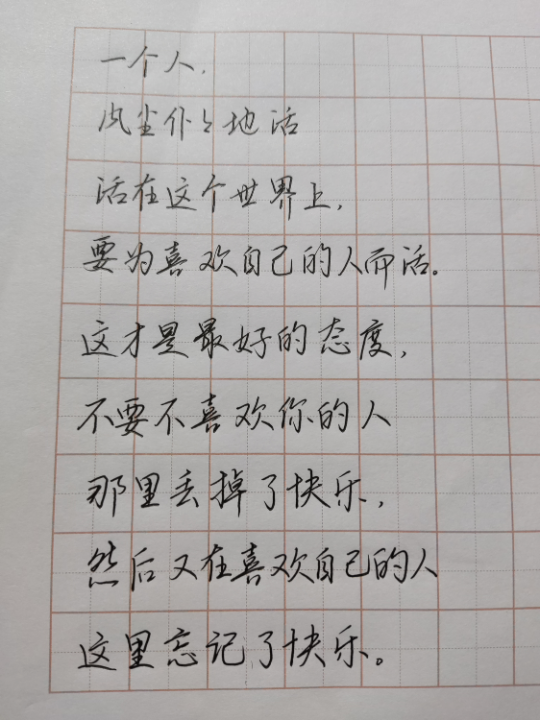 一个人,
风尘仆々地活
活在这个世界上,
要为喜欢自己的人而活。
这才是最好的态度,
不要不喜欢你的人
那里丢掉了快乐,
然后又在喜欢自己的人
这里忘记了快乐。